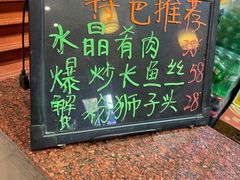 特色推荐
水晶肴肉 28
爆炒长鱼丝 58
蟹粉狮子头 28